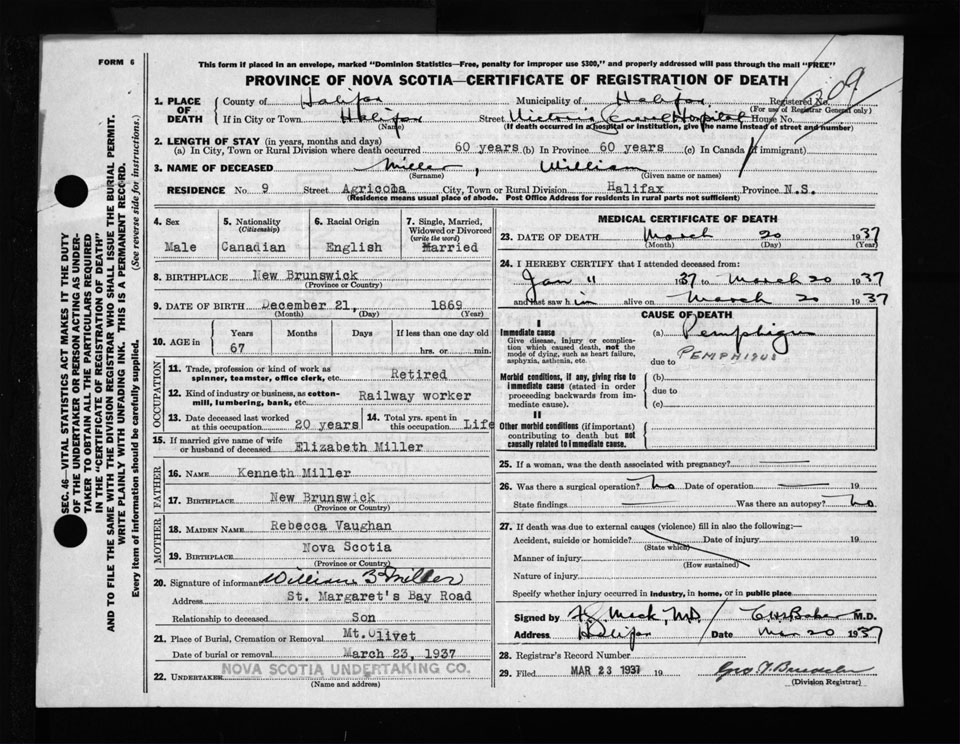 FORM 6
This form if placed in an envelope, marked "Dominion Statistics—Free, penalty for improper use $300," and properly addressed will pass through the mail "FREE"
PROVINCE OF NOVA SCOTIA—CERTIFICATE OF REGISTRATION OF DEATH
1. PLACE OF DEATH { County of Halifax Municipality of Halifax Registered No. 309
(For use of Registrar General only)
If in City or Town Halifax Street Victoria General Hospital House No.
(Name) (If death occurred in a hospital or institution, give the name instead of street and number)
2. LENGTH OF STAY (in years, months and days)
(a) In City, Town or Rural Division where death occurred 60 years (b) In Province 60 years (c) In Canada (if immigrant)
3. NAME OF DECEASED Miller, William
(Surname) (Given name or names)
RESIDENCE No. 9 Street Agricola City, Town or Rural Division Halifax Province N.S.
(Residence means usual place of abode. Post Office Address for residents in rural parts not sufficient)
4. Sex 5. Nationality 6. Racial Origin 7. Single, Married,
(Citizenship) Widowed or Divorced
(write the word)
Male Canadian English Married
8. BIRTHPLACE New Brunswick
(Province or Country)
9. DATE OF BIRTH December 21, 1869
(Month) (Day) (Year)
10. AGE in Years Months Days If less than one day old
67 hrs. or min.
OCCUPATION
11. Trade, profession or kind of work as
spinner, teamster, office clerk, etc. Retired
12. Kind of industry or business, as cotton-
mill, lumbering, bank, etc. Railway worker
13. Date deceased last worked 14. Total yrs. spent in
at this occupation 20 years this occupation Life
15. If married give name of wife
or husband of deceased Elizabeth Miller
FATHER
16. NAME Kenneth Miller
17. BIRTHPLACE New Brunswick
(Province or Country)
MOTHER
18. MAIDEN NAME Rebecca Vaughan
19. BIRTHPLACE Nova Scotia
(Province or Country)
20. Signature of informant William B Miller
Address St. Margaret's Bay Road
Relationship to deceased Son
21. Place of Burial, Cremation or Removal Mt. Olivet
Date of burial or removal March 23, 1937
22. UNDERTAKER NOVA SCOTIA UNDERTAKING CO.
(Name and address)
MEDICAL CERTIFICATE OF DEATH
23. DATE OF DEATH March 20 1937
(Month) (Day) (Year)
24. I HEREBY CERTIFY that I attended deceased from:
Jan 11 1937 to March 20 1937
and last saw him alive on March 20 1937
CAUSE OF DEATH
I
Immediate cause (a) Pemphigus
Give disease, injury or complica-
tion which caused death, not the
mode of dying, such as heart failure,
asphyxia, asthenia, etc. due to PEMPHIGUS
Morbid conditions, if any, giving rise to (b)
immediate cause (stated in order due to
proceeding backwards from im-
mediate cause). (c)
II
Other morbid conditions (if important)
contributing to death but not
causally related to immediate cause.
25. If a woman, was the death associated with pregnancy?
26. Was there a surgical operation? No Date of operation 19
State findings Was there an autopsy? No
27. If death was due to external causes (violence) fill in also the following:—
Accident, suicide or homicide? Date of injury 19
(State which)
Manner of injury
(How sustained)
Nature of injury
Specify whether injury occurred in industry, in home, or in public place
Signed by M.D. M.D.
Address Halifax Date Mar 20 1937
28. Registrar's Record Number
29. Filed MAR 23 1937 19
(Division Registrar)
SEC. 46—VITAL STATISTICS ACT MAKES IT THE DUTY
OF THE UNDERTAKER OR PERSON ACTING AS UNDER-
TAKER TO OBTAIN ALL THE PARTICULARS REQUIRED
IN THE "CERTIFICATE OF REGISTRATION OF DEATH"
AND TO FILE THE SAME WITH THE DIVISION REGISTRAR WHO SHALL ISSUE THE BURIAL PERMIT.
WRITE PLAINLY WITH UNFADING INK. THIS IS A PERMANENT RECORD.
Every item of information should be carefully supplied. (See reverse side for instructions.)